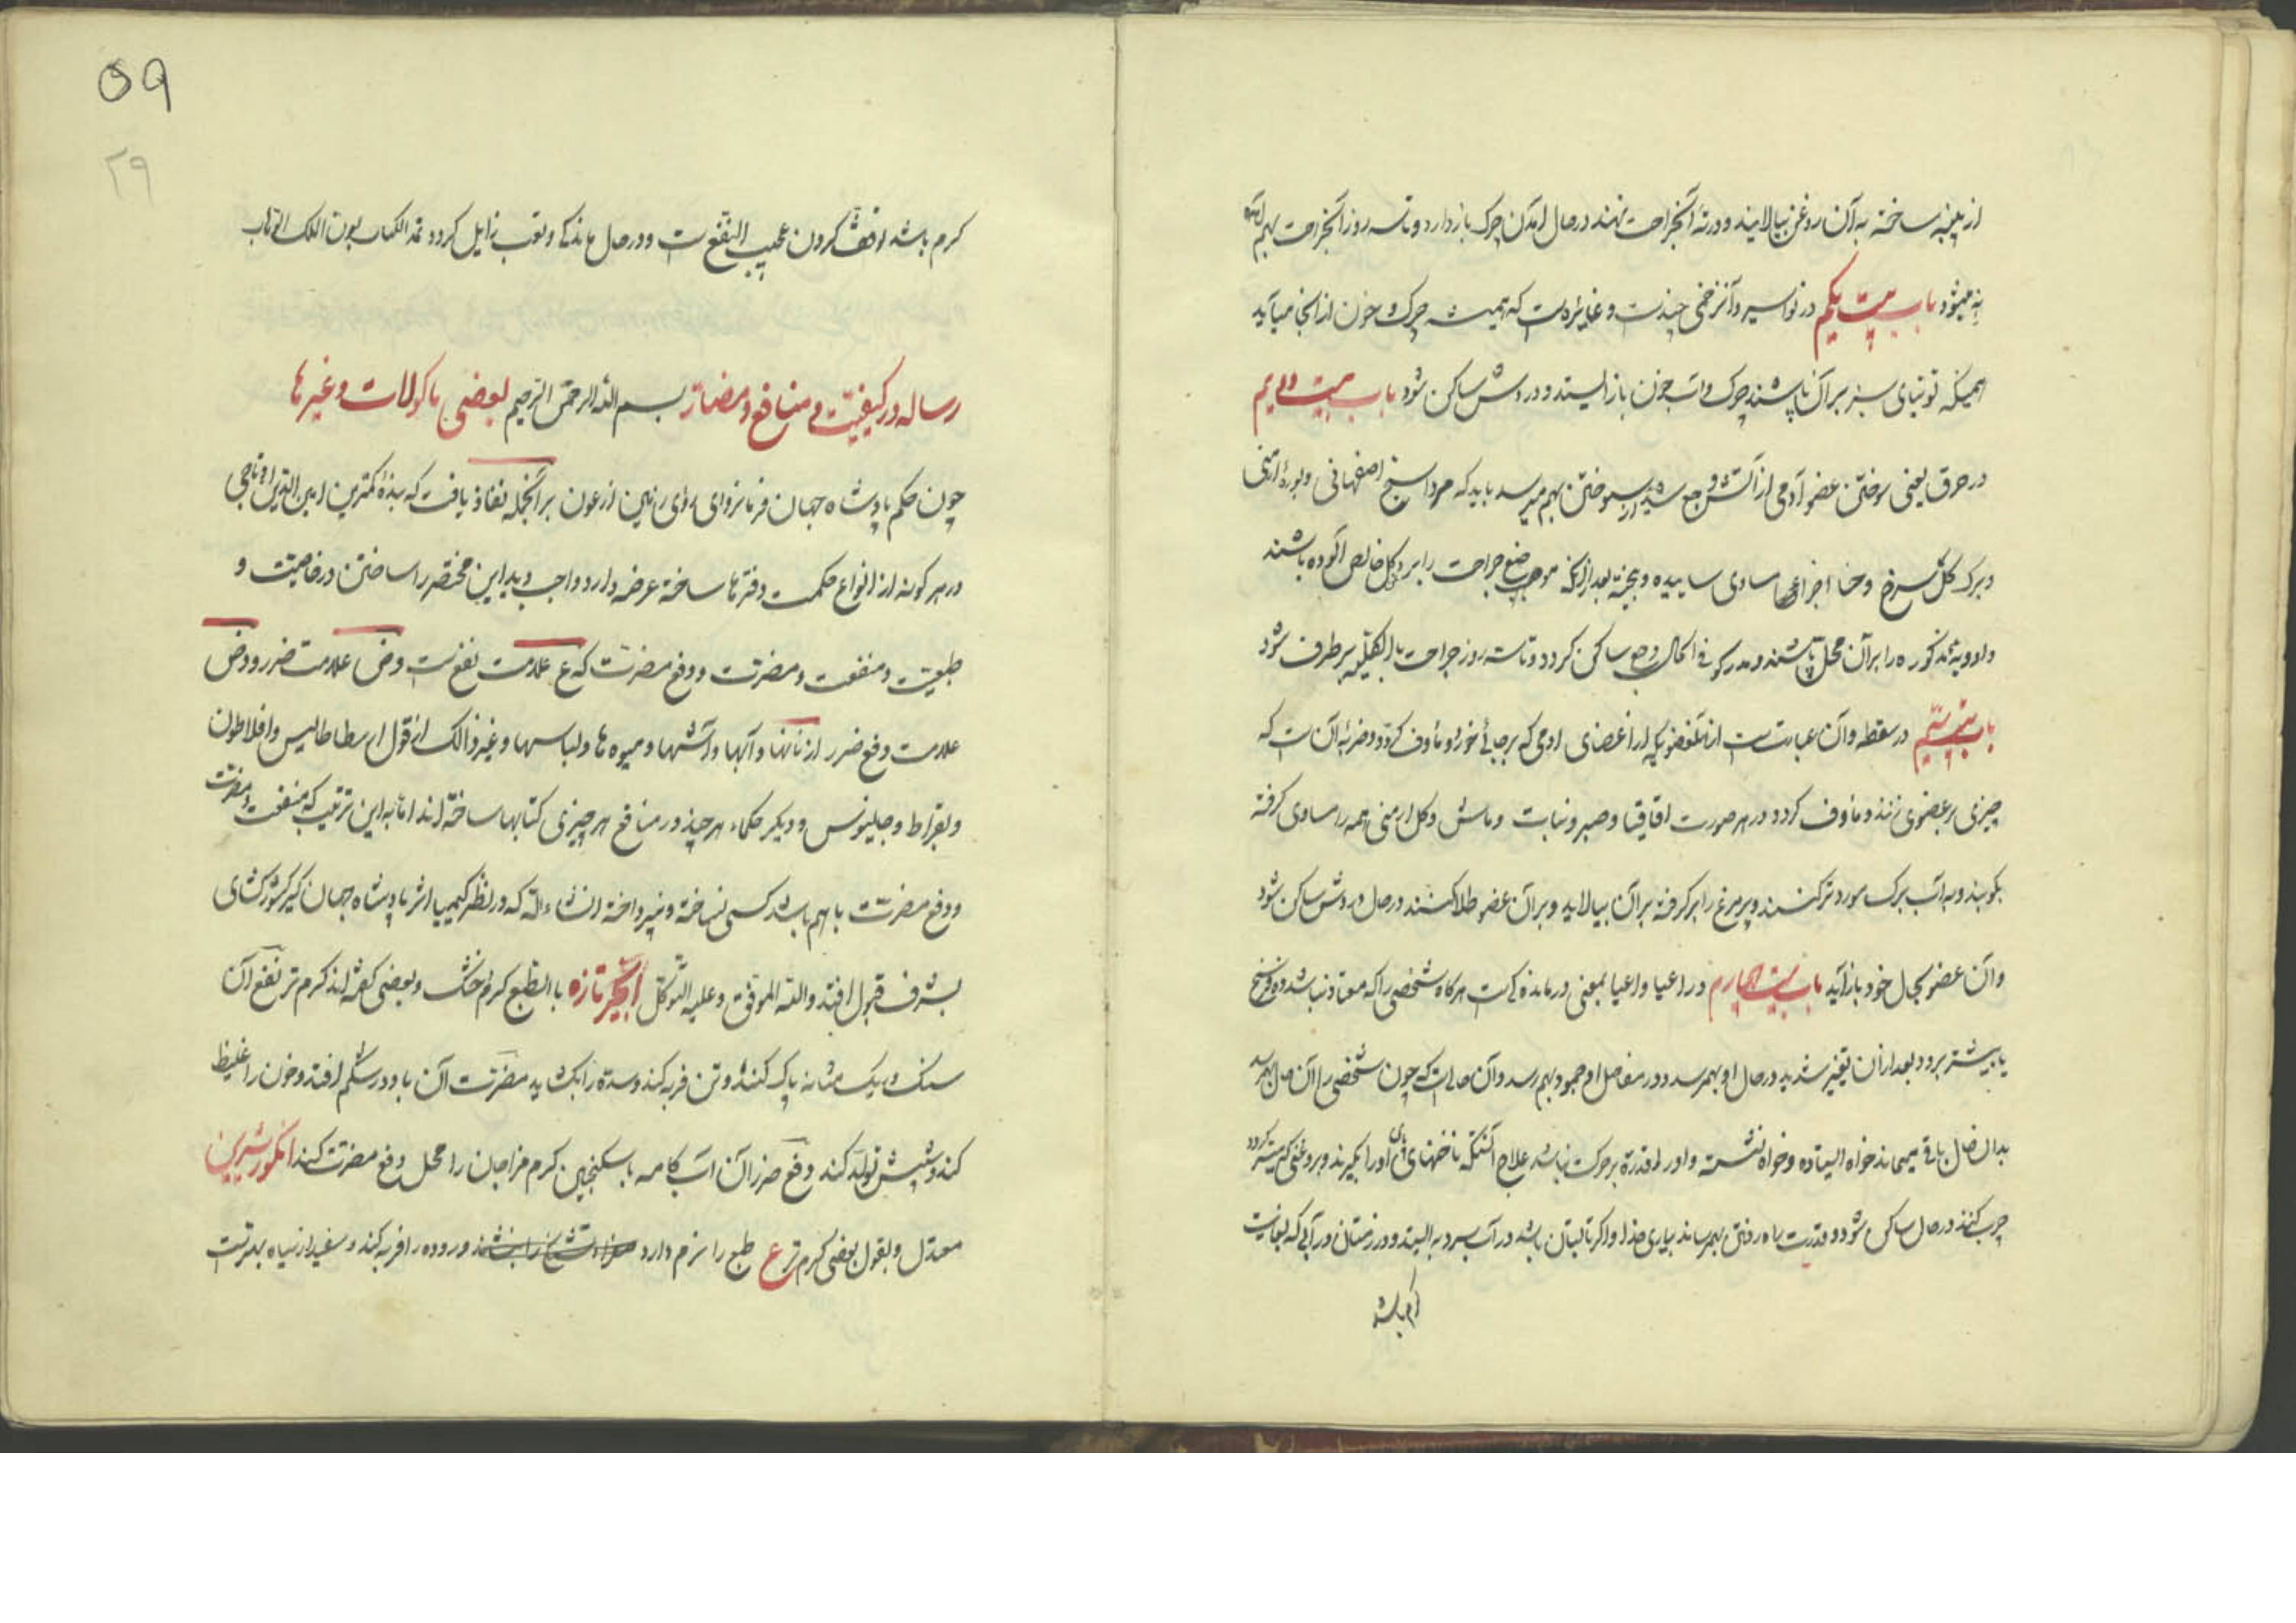 از پنبه ساخته به آن روغن بیالایند و در ته آنجراحت نهند در حال امدن چرک باز دارد و تا سه روز آنجراحت بهم آمده
به میشود باب بیست یکم در نواسیر و آن زخمی چندست و غایره است که همیشه چرک و خون از آنجا میآید
همینکه توتیای سبز بر آن پاشند چرک و آب خون باز ایستد و دردش ساکن شود باب بیست دویم
در حرق یعنی سوختن عضو آدمی از آتش و سوختن بهم میرسد باید که مرداسنج اصفهانی و بوره ارمنی
و برک کل سرخ و حنا اجزای مساوی ساییده و بیخته بعد از آنکه موضع جراحت را بر کل خالص آلوده باشند
و ادویه مذکوره را بر آن محل پاشند و مدرکور فی الحال وجع ساکن کردد و تا سه روز جراحت بالکلیه برطرف شود
باب بیست سیم در سقطه و آن عبارتست از آنعضویکه از اعضای ادمی که بر جائی خورد و مأوف کردد و ضربه آن است که
چیزی بر عضوی زنند و ماوف کردد در هر صورت اقاقیا و صبر و نبات و ماش و کل ارمنی همه را مساوی کرفته
بکوبند و به آب برک مورد تر کنند و پر مرغ را بر کرفته بر آن بیالاید و بر آن عضو طلا کنند در حال دردش ساکن شود
و آن عضو بحال خود باز آید باب بیست چهارم در اعیا و اعیا بمعنی درماندکی است هرکاه شخصی را که معتاد نباشد ده فرسخ
یا بیشتر برود بعد از آن تغییر شدید در حال او بهمرسد و در مفاصل او جمود بهم رسد و آن حالت که چون شخصی را آن حال بهمرسد
بدان حال باقی میماند خواه ایستاده و خواه نشسته و او را قدرة بر حرکت نباشد علاج آنکه ناخنهای پای او را بکیرند و بروغنی که میسر کردد
چرب کنند در حال ساکن شود و قدرت راه رفتن بهمرساند بیاری خدا و اکر تابستان باشد در آب سرد به ایستد و در زمستان در آبی که بغایت
کرم باشد
۵۹
۲۹
کرم باشد توقف کردن عجیب النفع است و در حال ماندکی و تعب زایل کردد تمة الکتاب بعون الملک الوهاب
رساله در کیفیت و منافع و مضار بسم الله الرحمن الرحیم بعضی ماکولات و غیرها
چون حکم پادشاه جهان فرمانروای روی زمین از عون بر آنجمله نفاذ یافت که بنده کمترین
در هر کونه از انواع حکمت دفترها ساخته عرضه دارد واجب دید این مختصر را ساختن در خاصیت و
طبیعت و منفعت و مضرت و دفع مضرت که ع علامت نفع است و ض علامت ضرر و دض
علامت دفع ضرر از نانها و آبها و آشها و میوه ها و لباسها و غیر ذالک از قول ارسطاطالیس و افلاطون
و بقراط و جالینوس و دیکر حکماء هر چند در منافع هر چیزی کتابها ساخته اند اما به این ترتیب که منفعت و مضرت
و دفع مضرت با هم باشد کسی نساخته و نپرداخته انشاء الله که در نظر کیمیا اثر پادشاه جهان کیر کشورکشای
بشرف قبول افتد والله الموفق و علیه التوکل انجیر تازه با الطبع کرم و خشک و بعضی کفته اند کرم تر نفع آن
سنک و ریک مثانه پاک کند و تن فربه کند و سده را بکشاید مضرت آن باد در شکم افتد و خون را غلیظ
کند و شپش تولد کند دفع ضرر آن آب کامه با سکنجبین کرم مزاجان را محل دفع مضرت کند انکور شیرین
معتدل و بقول بعضی کرم تر ع طبع را نرم دارد و روده را فربه کند و سفید از سیاه بهتر است